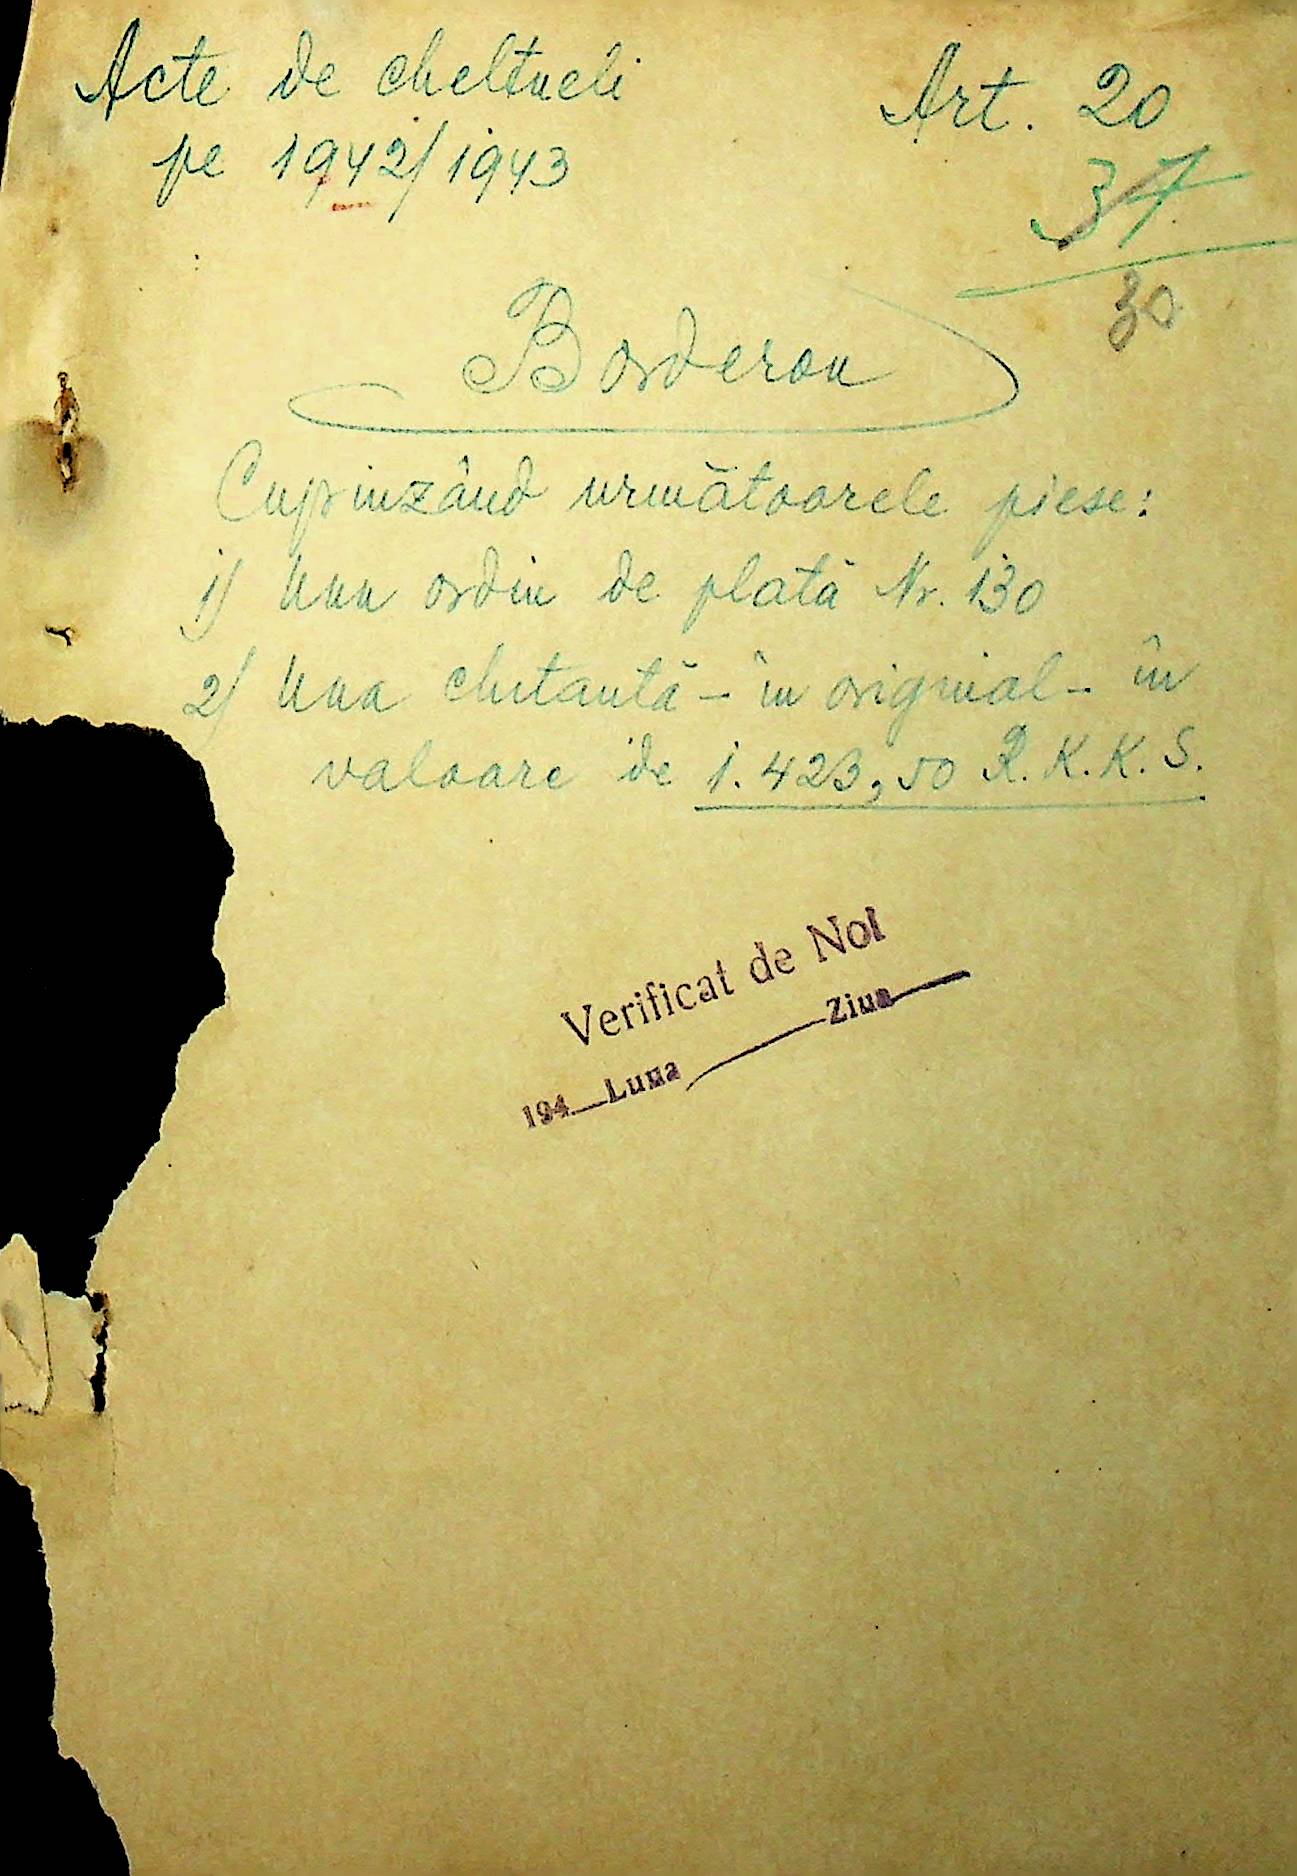 Acte de cheltueli
pe 1942/1943
Art. 20
37
30
Borderou
Cuprinzând următoarele piese:
1) Unu ordin de plată Nr. 130
2) Una chitantă - în original - în
valoare de 1.423,50 R.K.K.S.
Verificat de Noi
194 Luna Ziua